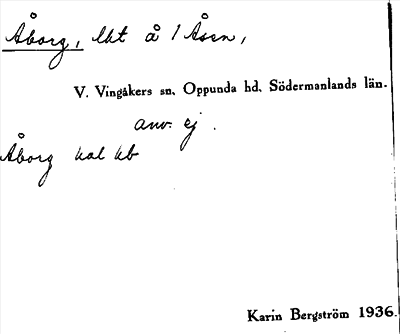 Åborg, lht å 1 Åsen,
V. Vingåkers sn. Oppunda hd. Södermanlands län.
anv. ej.
Åborg kal kb
Karin Bergström 1936.